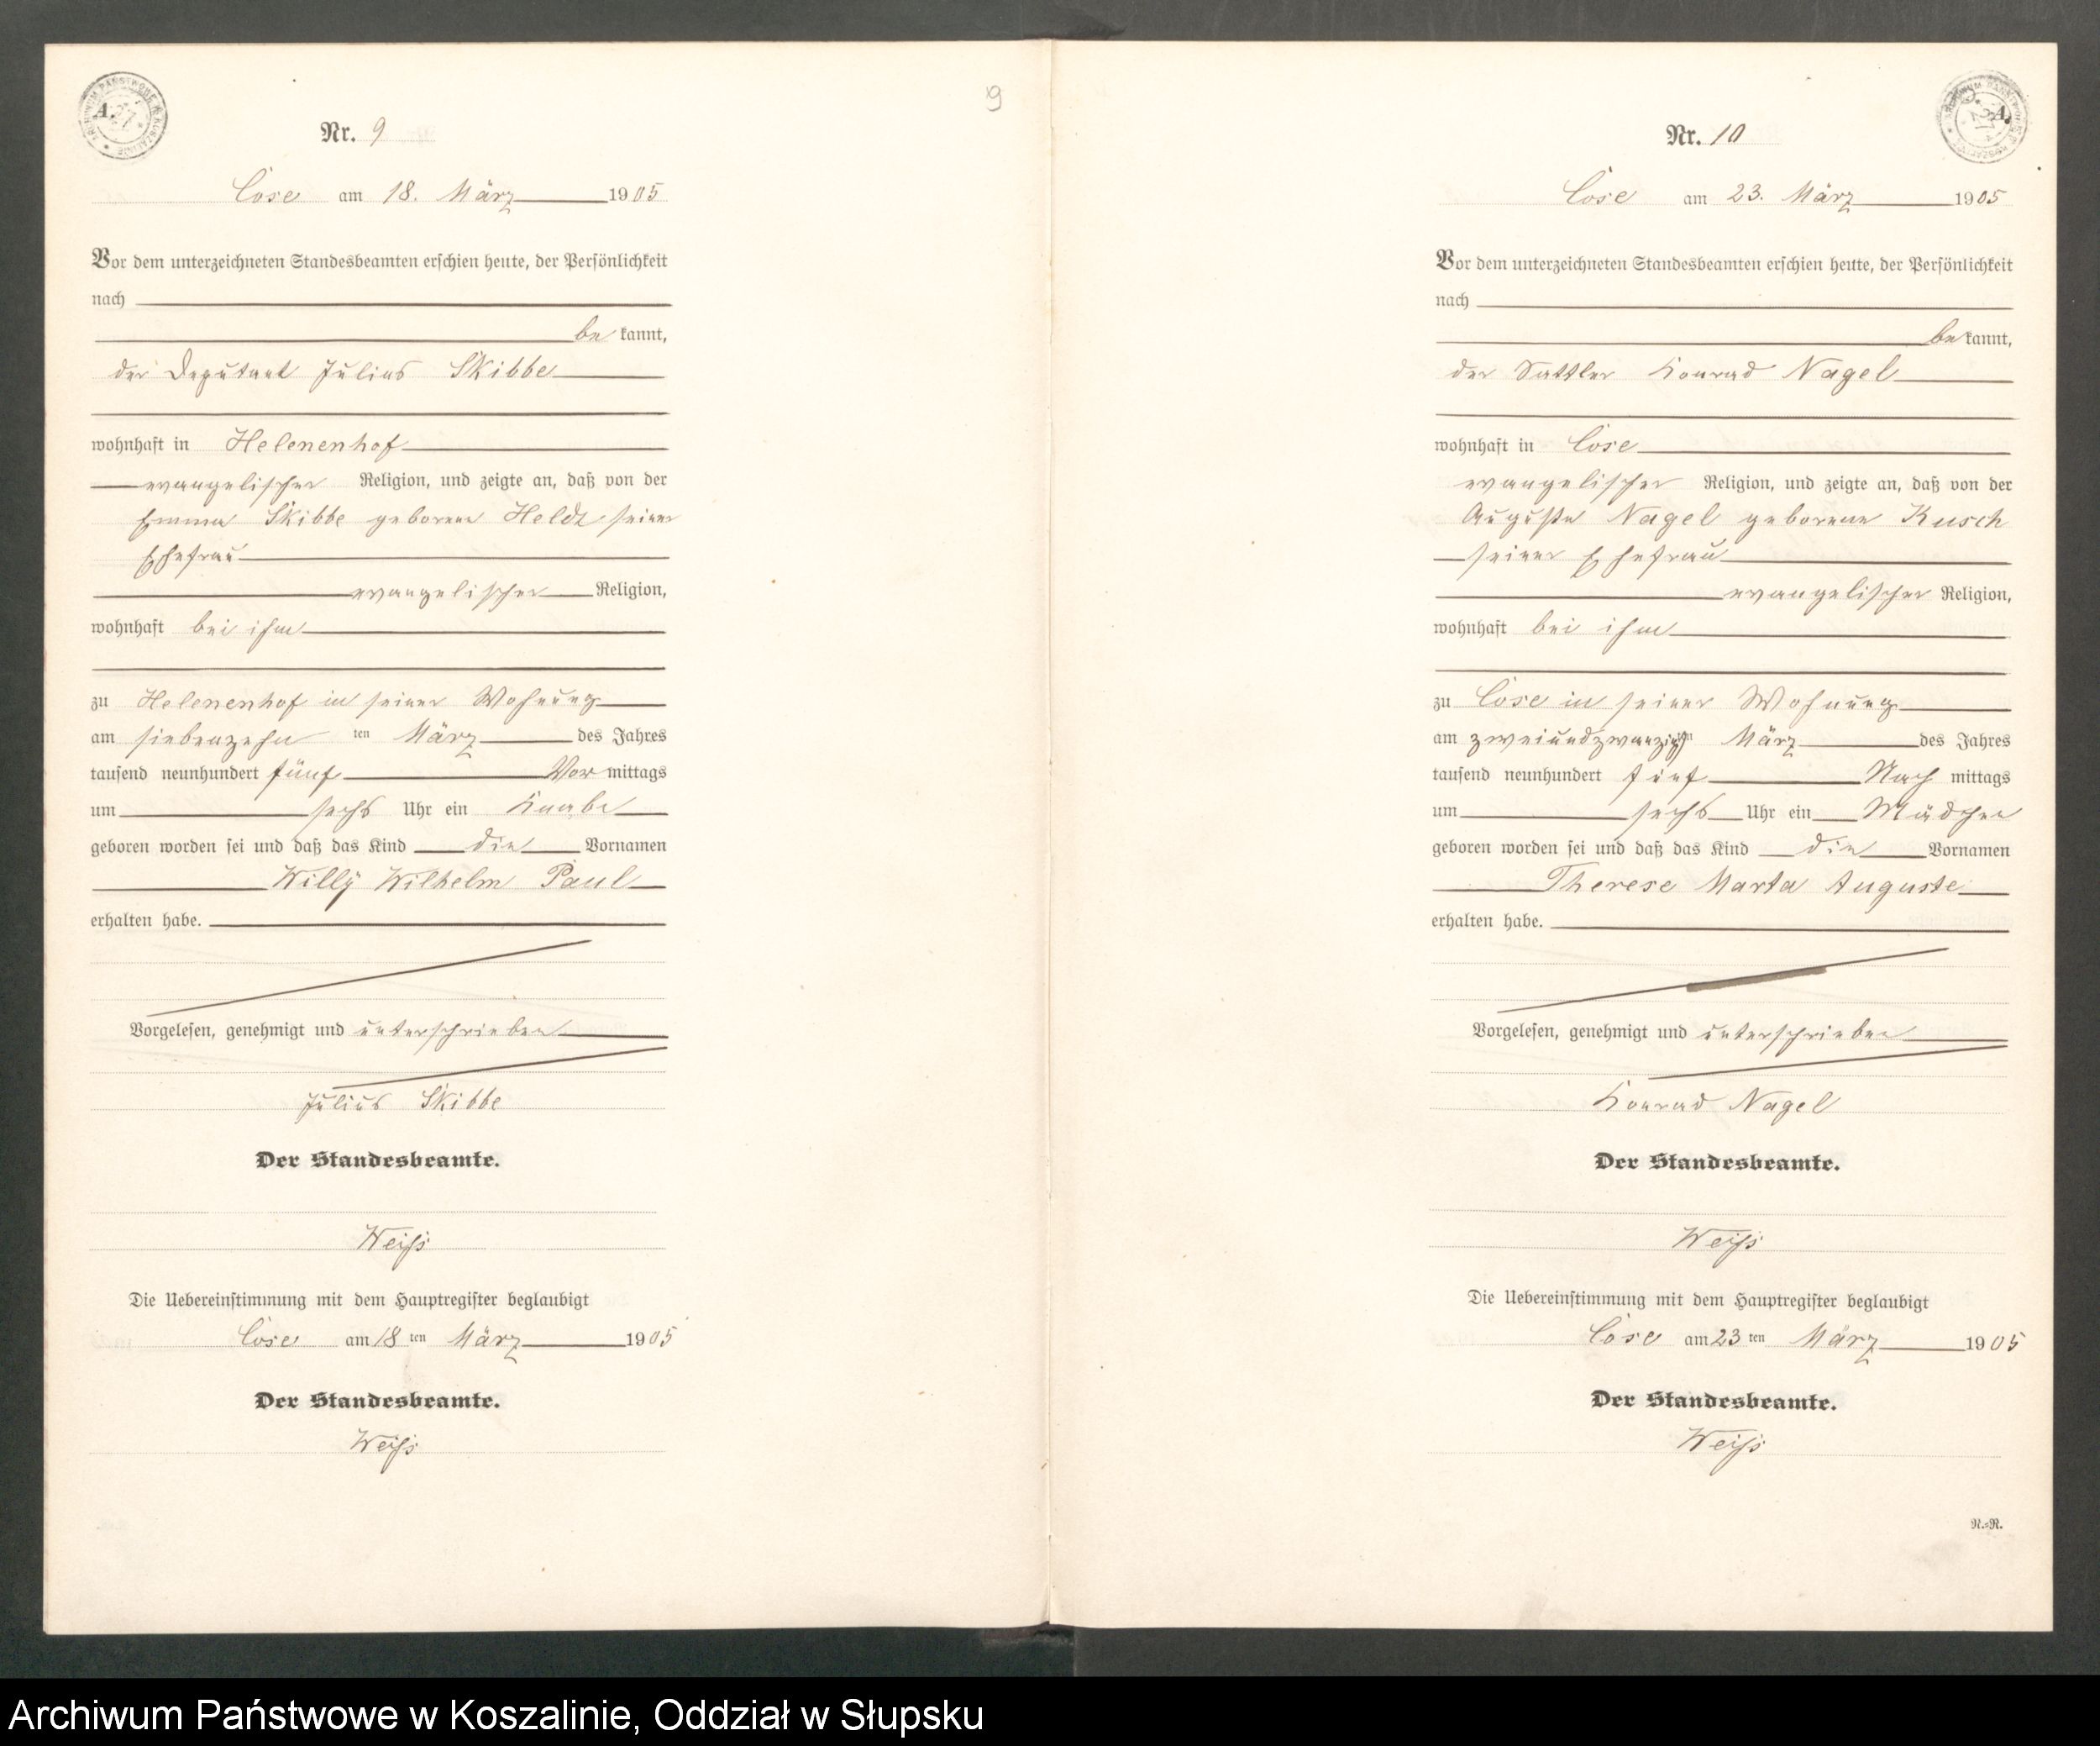 9
Nr. 9
Cose am 18. März 1905
Vor dem unterzeichneten Standesbeamten erschien heute, der Persönlichkeit
nach
be kannt,
der Deputant Julius Skibbe
wohnhaft in Helenenhof
evangelischer Religion, und zeigte an, daß von der
Emma Skibbe geborene Heldt seiner
Ehefrau
evangelischer Religion,
wohnhaft bei ihm
zu Helenenhof in seiner Wohnung
am siebenzehn ten März des Jahres
tausend neunhundert fünf Vor mittags
um sechs Uhr ein Knabe
geboren worden sei und daß das Kind die Vornamen
Willy Wilhelm Paul
erhalten habe.
Vorgelesen, genehmigt und unterschrieben
Julius Skibbe
Der Standesbeamte.
Weiß
Die Uebereinstimmung mit dem Hauptregister beglaubigt
Cose am 18 ten März 1905
Der Standesbeamte.
Weiß
Nr. 10
Cose am 23. März 1905
Vor dem unterzeichneten Standesbeamten erschien heute, der Persönlichkeit
nach
be kannt,
der Sattler Konrad Nagel
wohnhaft in Cose
evangelischer Religion, und zeigte an, daß von der
Auguste Nagel geborene Kusch
seiner Ehefrau
evangelischer Religion,
wohnhaft bei ihm
zu Cose in seiner Wohnung
am zweiundzwanzigsten März des Jahres
tausend neunhundert fünf Nach mittags
um sechs Uhr ein Mädchen
geboren worden sei und daß das Kind die Vornamen
Therese Marta Auguste
erhalten habe.
Vorgelesen, genehmigt und unterschrieben
Konrad Nagel
Der Standesbeamte.
Weiß
Die Uebereinstimmung mit dem Hauptregister beglaubigt
Cose am 23 ten März 1905
Der Standesbeamte.
Weiß
N.=R.
Archiwum Państwowe w Koszalinie, Oddział w Słupsku